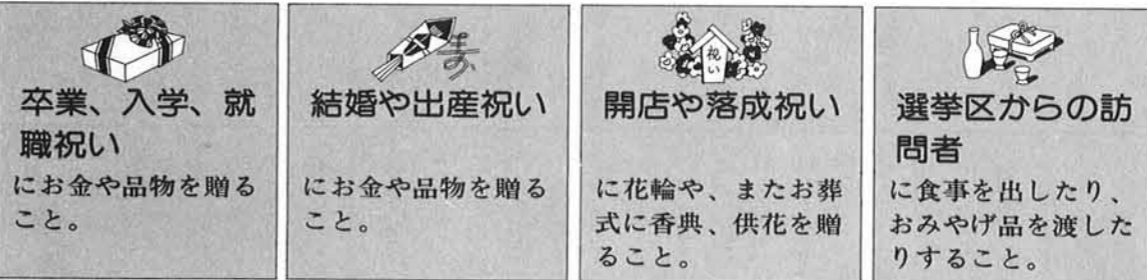 卒業、入学、就
職祝い
にお金や品物を贈る
こと。
結婚や出産祝い
にお金や品物を贈る
こと。
祝い
開店や落成祝い
に花輪や、またお葬
式に香典、供花を贈
ること。
選挙区からの訪
問者
に食事を出したり、
おみやげ品を渡した
りすること。